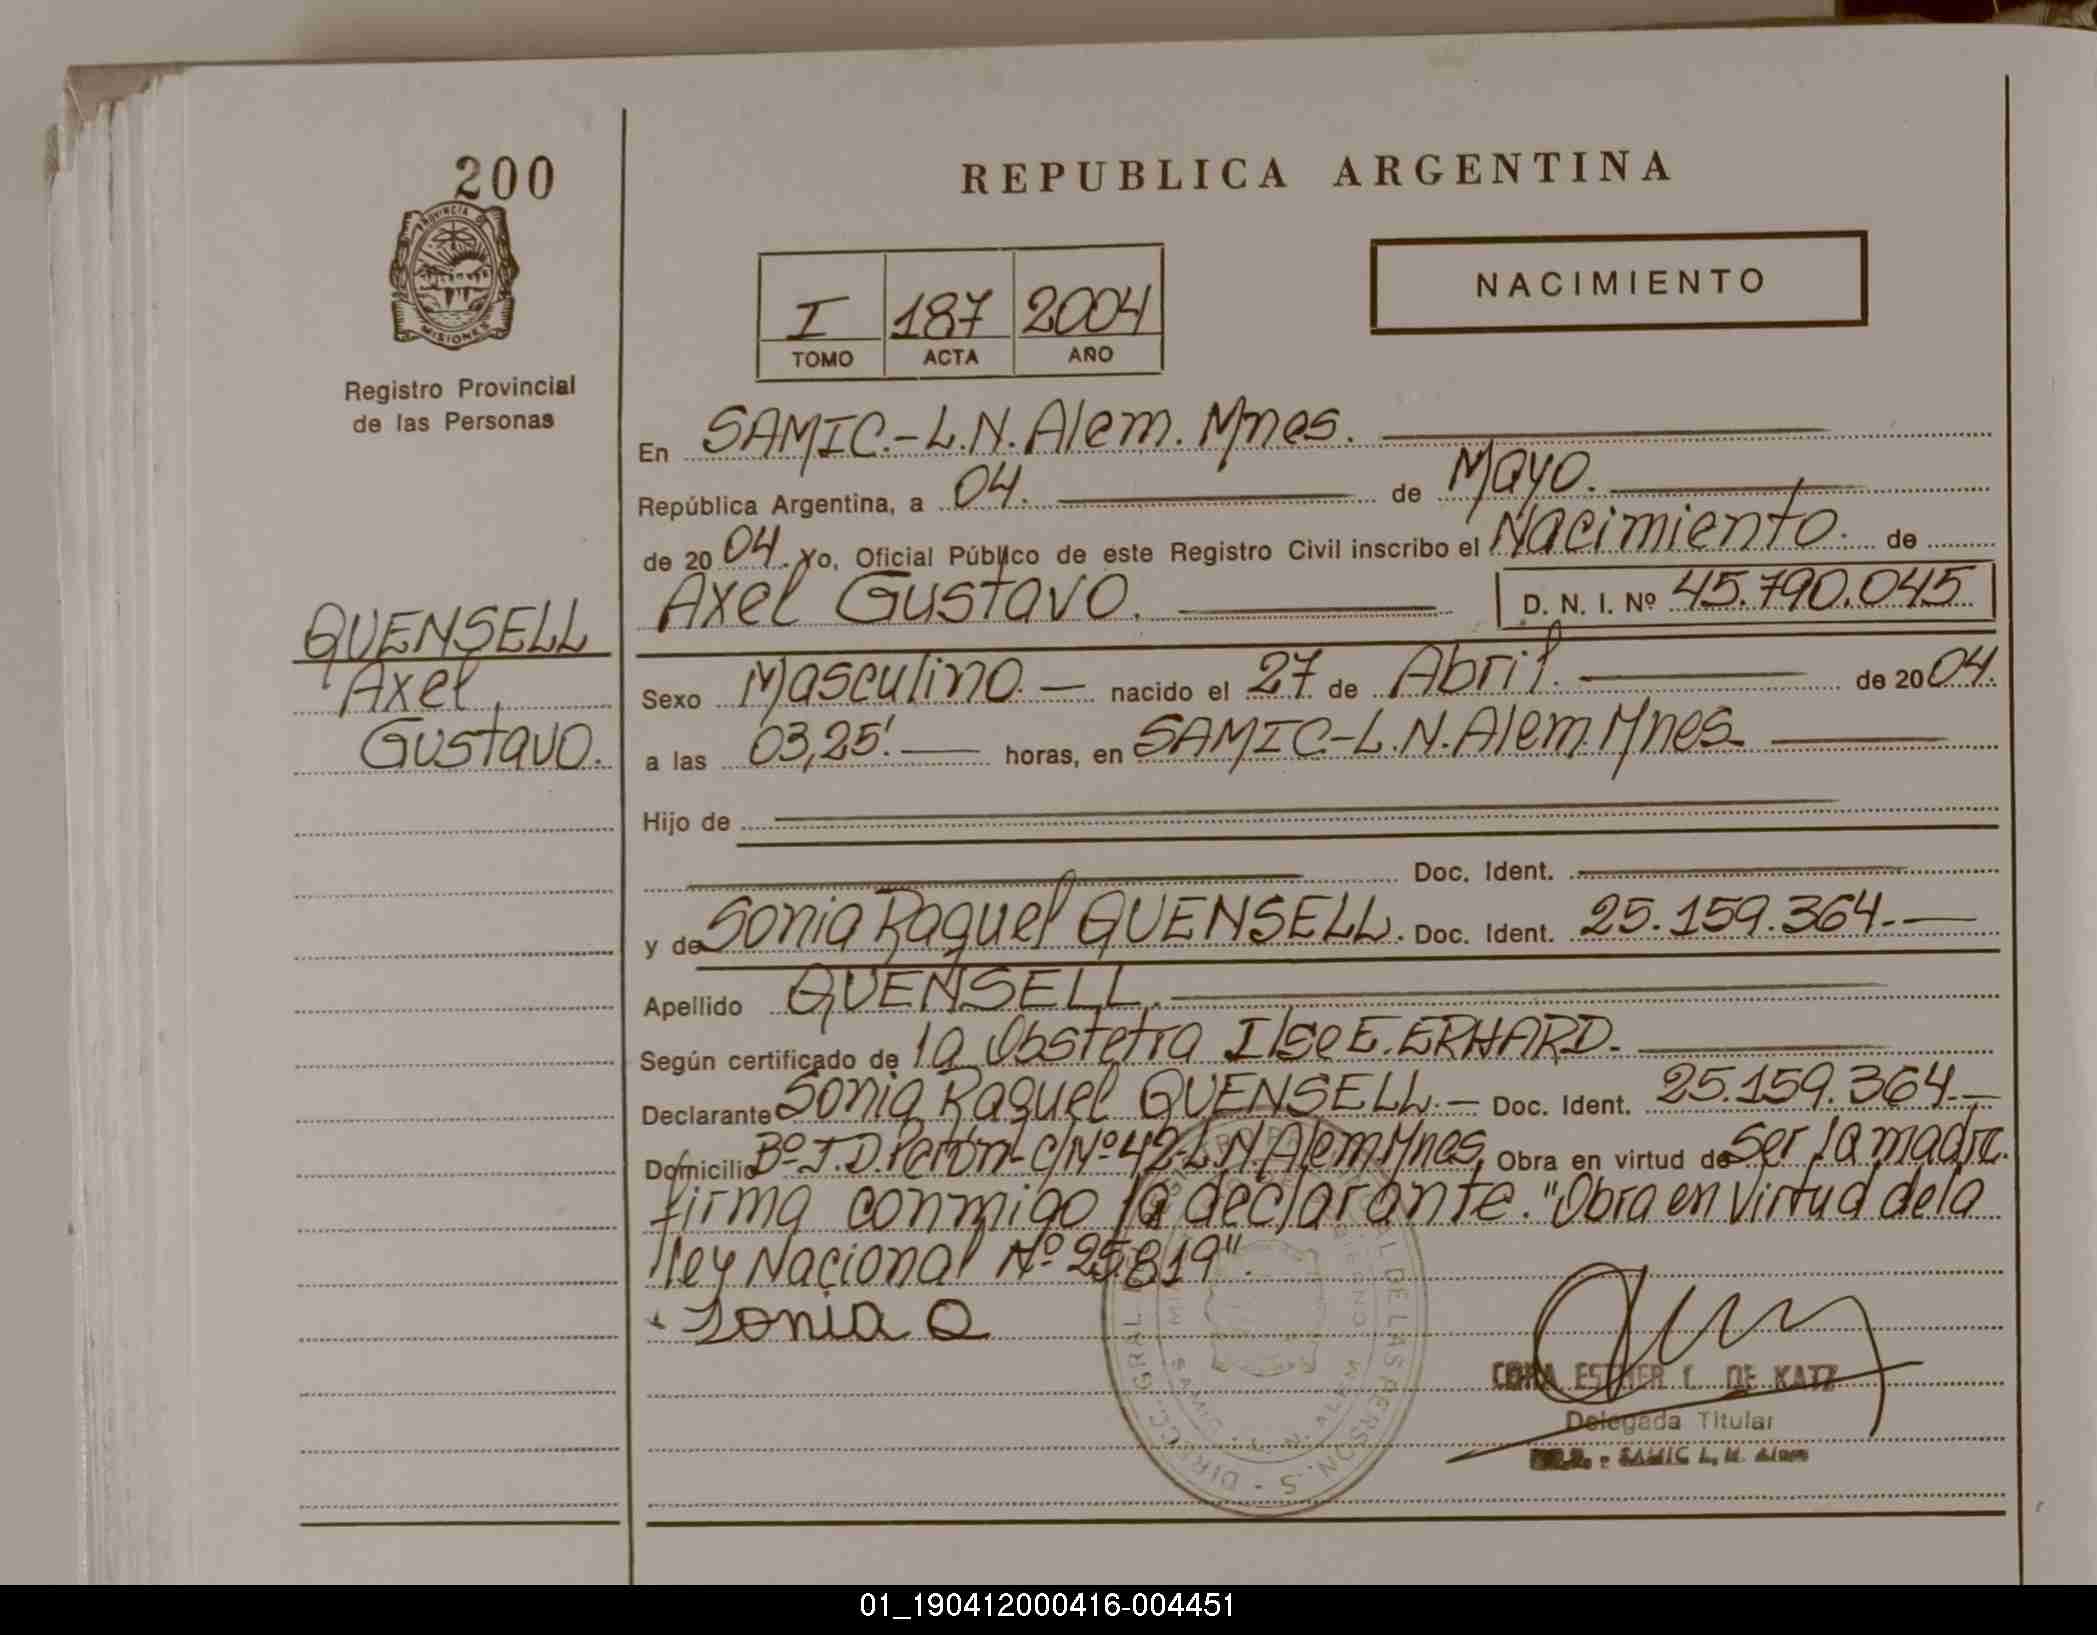 200
PROVINCIA DE
MISIONES
Registro Provincial
de las Personas
QUENSELL
Axel
Gustavo.
REPUBLICA ARGENTINA
NACIMIENTO
I 187 2004
TOMO ACTA AÑO
En SAMIC.-L.N.Alem.Mnes.
República Argentina, a 04. de Mayo.
de 2004. Yo, Oficial Público de este Registro Civil inscribo el Nacimiento. de
Axel Gustavo. D. N. I. Nº 45.790.045
Sexo Masculino. nacido el 27 de Abril. de 2004.
a las 03,25'. horas, en SAMIC.-L.N.Alem.Mnes
Hijo de
Doc. Ident.
y de Sonia Raquel QUENSELL. Doc. Ident. 25.159.364.-
Apellido QUENSELL.
Según certificado de la Obstetra Ilse E. ERHARD.
Declarante Sonia Raquel QUENSELL.- Doc. Ident. 25.159.364.-
Domicilio Bº J.D.Perón-C/Nº42-L.N.Alem.Mnes. Obra en virtud de ser la madre.
firma conmigo la declarante. "Obra en virtud de la
ley Nacional Nº 25.819".
Sonia Q
CORA ESTHER L. DE KATZ
Delegada Titular
SAMIC L. N. Alem
01_190412000416-004451